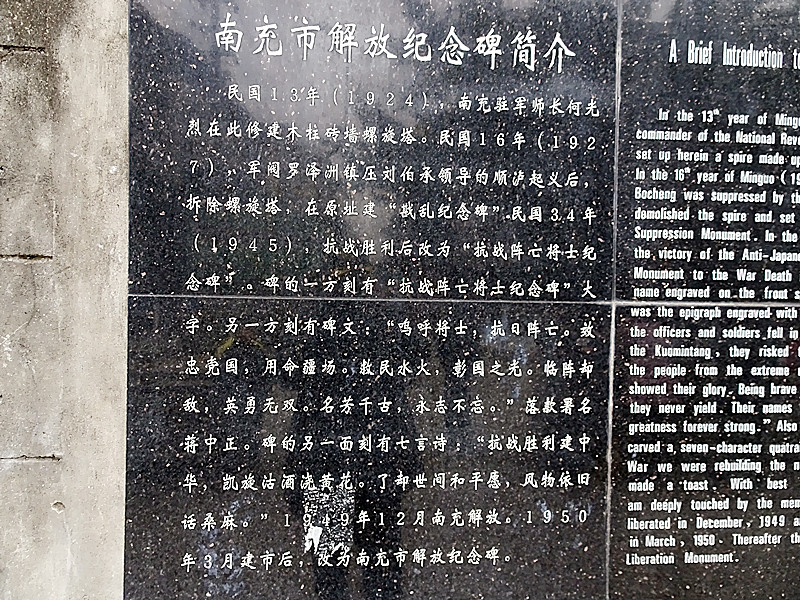 南充市解放纪念碑简介
民国13年(1924)，南充驻军师长何光
烈在此修建木柱砖墙螺旋塔。民国16年(192
7)，军阀罗泽洲镇压刘伯承领导的顺泸起义后，
拆除螺旋塔，在原址建“戡乱纪念碑”。民国34年
(1945)，抗战胜利后改为“抗战阵亡将士纪
念碑”。碑的一方刻有“抗战阵亡将士纪念碑”大
字。另一方刻有碑文：“呜呼将士，抗日阵亡。效
忠党国，用命疆场。救民水火，彰国之光。临阵却
敌，英勇无双。名芳千古，永志不忘。”落款署名
蒋中正。碑的另一面刻有七言诗：“抗战胜利建中
华，凯旋沽酒浇黄花。了却世间和平愿，风物依旧
话桑麻。”1949年12月南充解放。1950
年3月建市后，改为南充市解放纪念碑。
A Brief Introduction to
In the 13th year of Minguo
commander of the National Revo
set up herein a spire made up
In the 16th year of Minguo (19
Bocheng was suppressed by th
demolished the spire and set
Suppression Monument. In the
the victory of the Anti-Japane
Monument to the War Death
name engraved on the front s
was the epigraph engraved with
the officers and soldiers fell in
the Kuomintang, they risked
the people from the extreme
showed their glory. Being brave
they never yield. Their names
greatness forever strong.” Also
carved a seven-character quatra
War we were rebuilding the n
made a toast. With best
am deeply touched by the mem
liberated in December, 1949 a
in March, 1950. Thereafter th
Liberation Monument.